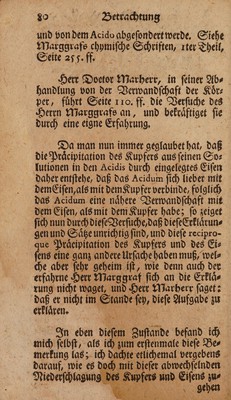 80 Betrachtung
und von dem Acido abgesondert werde. Siehe
Marggrafs chymische Schriften, 1ter Theil,
Seite 255. ff.
Herr Doctor Marherr, in seiner Ab-
handlung von der Verwandschaft der Kör-
per, führt Seite 110. ff. die Versuche des
Herrn Marggrafs an, und bekräftiget sie
durch eine eigne Erfahrung.
Da man nun immer geglaubet hat, daß
die Präcipitation des Kupfers aus seinen So-
lutionen in den Acidis durch eingelegtes Eisen
daher entstehe, daß das Acidum sich lieber mit
dem Eisen, als mit dem Kupfer verbinde, folglich
das Acidum eine nähere Verwandschaft mit
dem Eisen, als mit dem Kupfer habe; so zeiget
sich nun durch diese Versuche, daß diese Erklärun-
gen und Sätze unrichtig sind, und diese recipro-
que Präcipitation des Kupfers und des Ei-
sens eine ganz andere Ursache haben muß, wel-
che aber sehr geheim ist, wie denn auch der
erfahrne Herr Marggraf sich an die Erklä-
rung nicht waget, und Herr Marherr saget:
daß er nicht im Stande sey, diese Aufgabe zu
erklären.
In eben diesem Zustande befand ich
mich selbst, als ich zum erstenmale diese Be-
merkung las; ich dachte etlichemal vergebens
darauf, wie es doch mit dieser abwechselnden
Niederschlagung des Kupfers und Eisens zu-
gehen